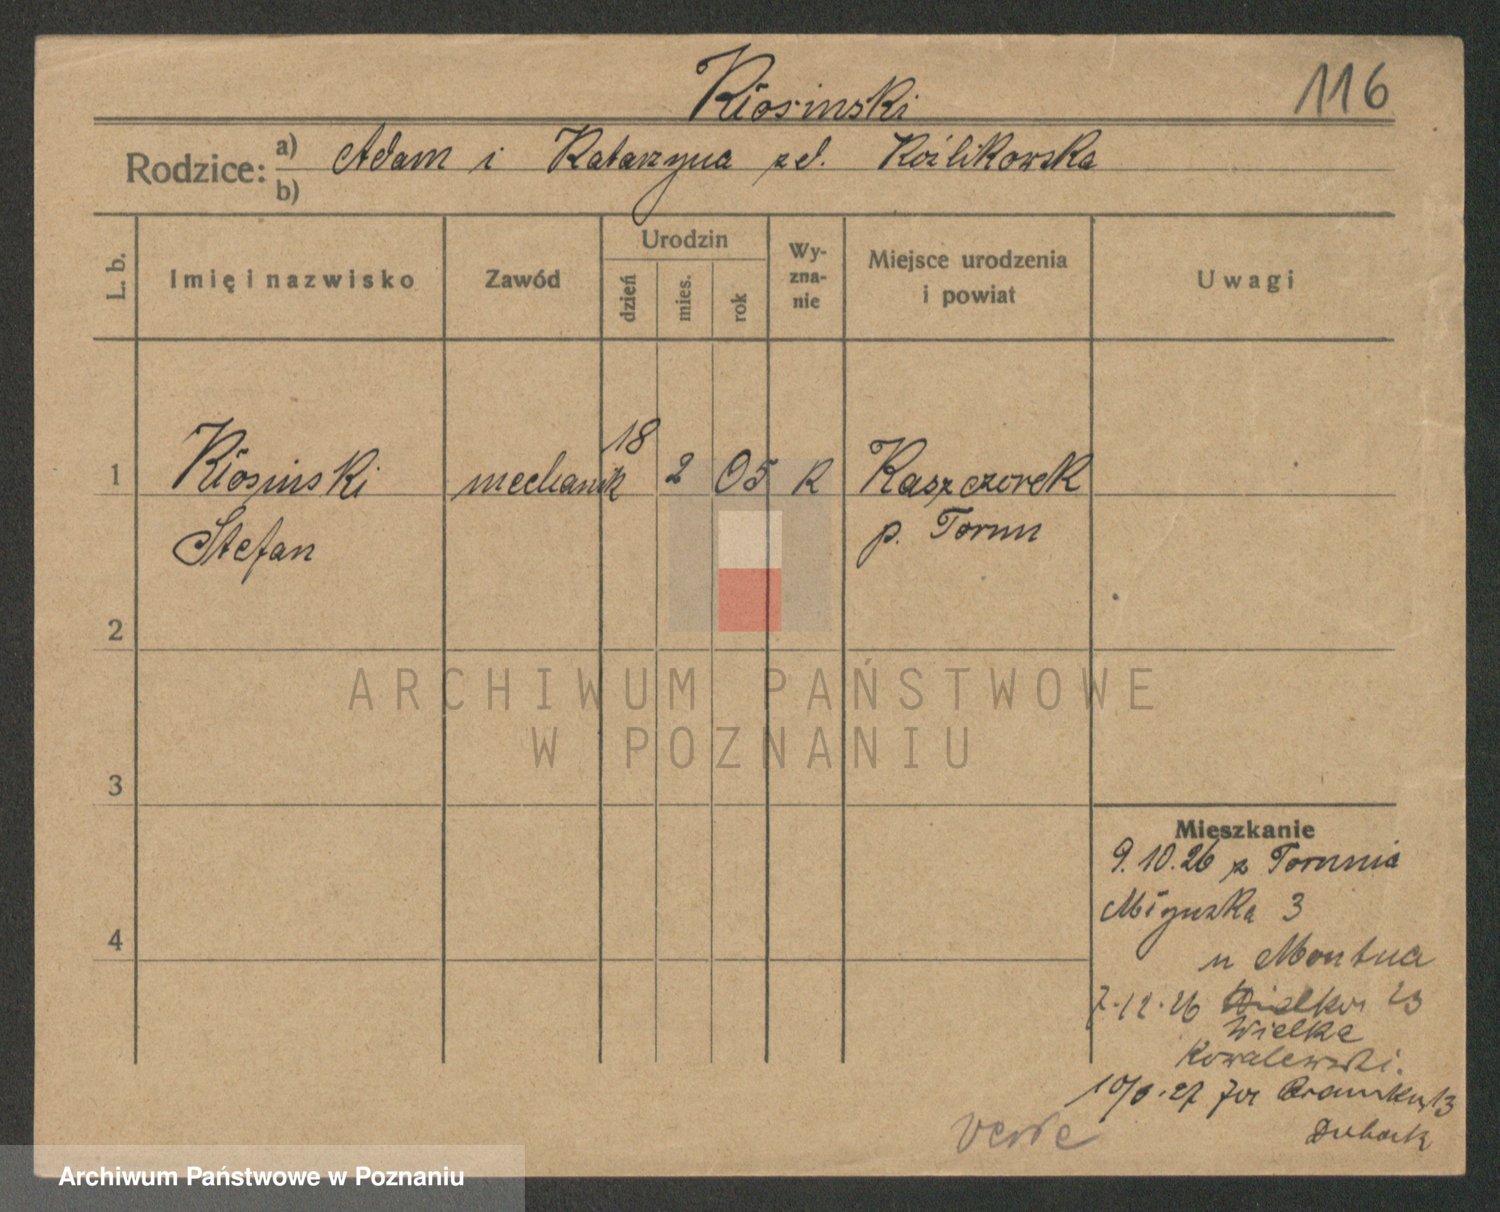 Kłosinski
116
Rodzice: a) Adam i Katarzyna zd. Koźlikowska
b)
L. b.
Imię i nazwisko
Zawód
Urodzin
dzień
mies.
rok
Wy-
zna-
nie
Miejsce urodzenia
i powiat
Uwagi
1 Kłosinski mechanik 18 2 05 k Kaszczorek
Stefan p. Torun
2
3
4
ARCHIWUM PAŃSTWOWE
W POZNANIU
Mieszkanie
9.10.26 z Torunia
3
u Montua
7.12.26 23
Wielka
Kowalewski.
27 13
verte
Archiwum Państwowe w Poznaniu